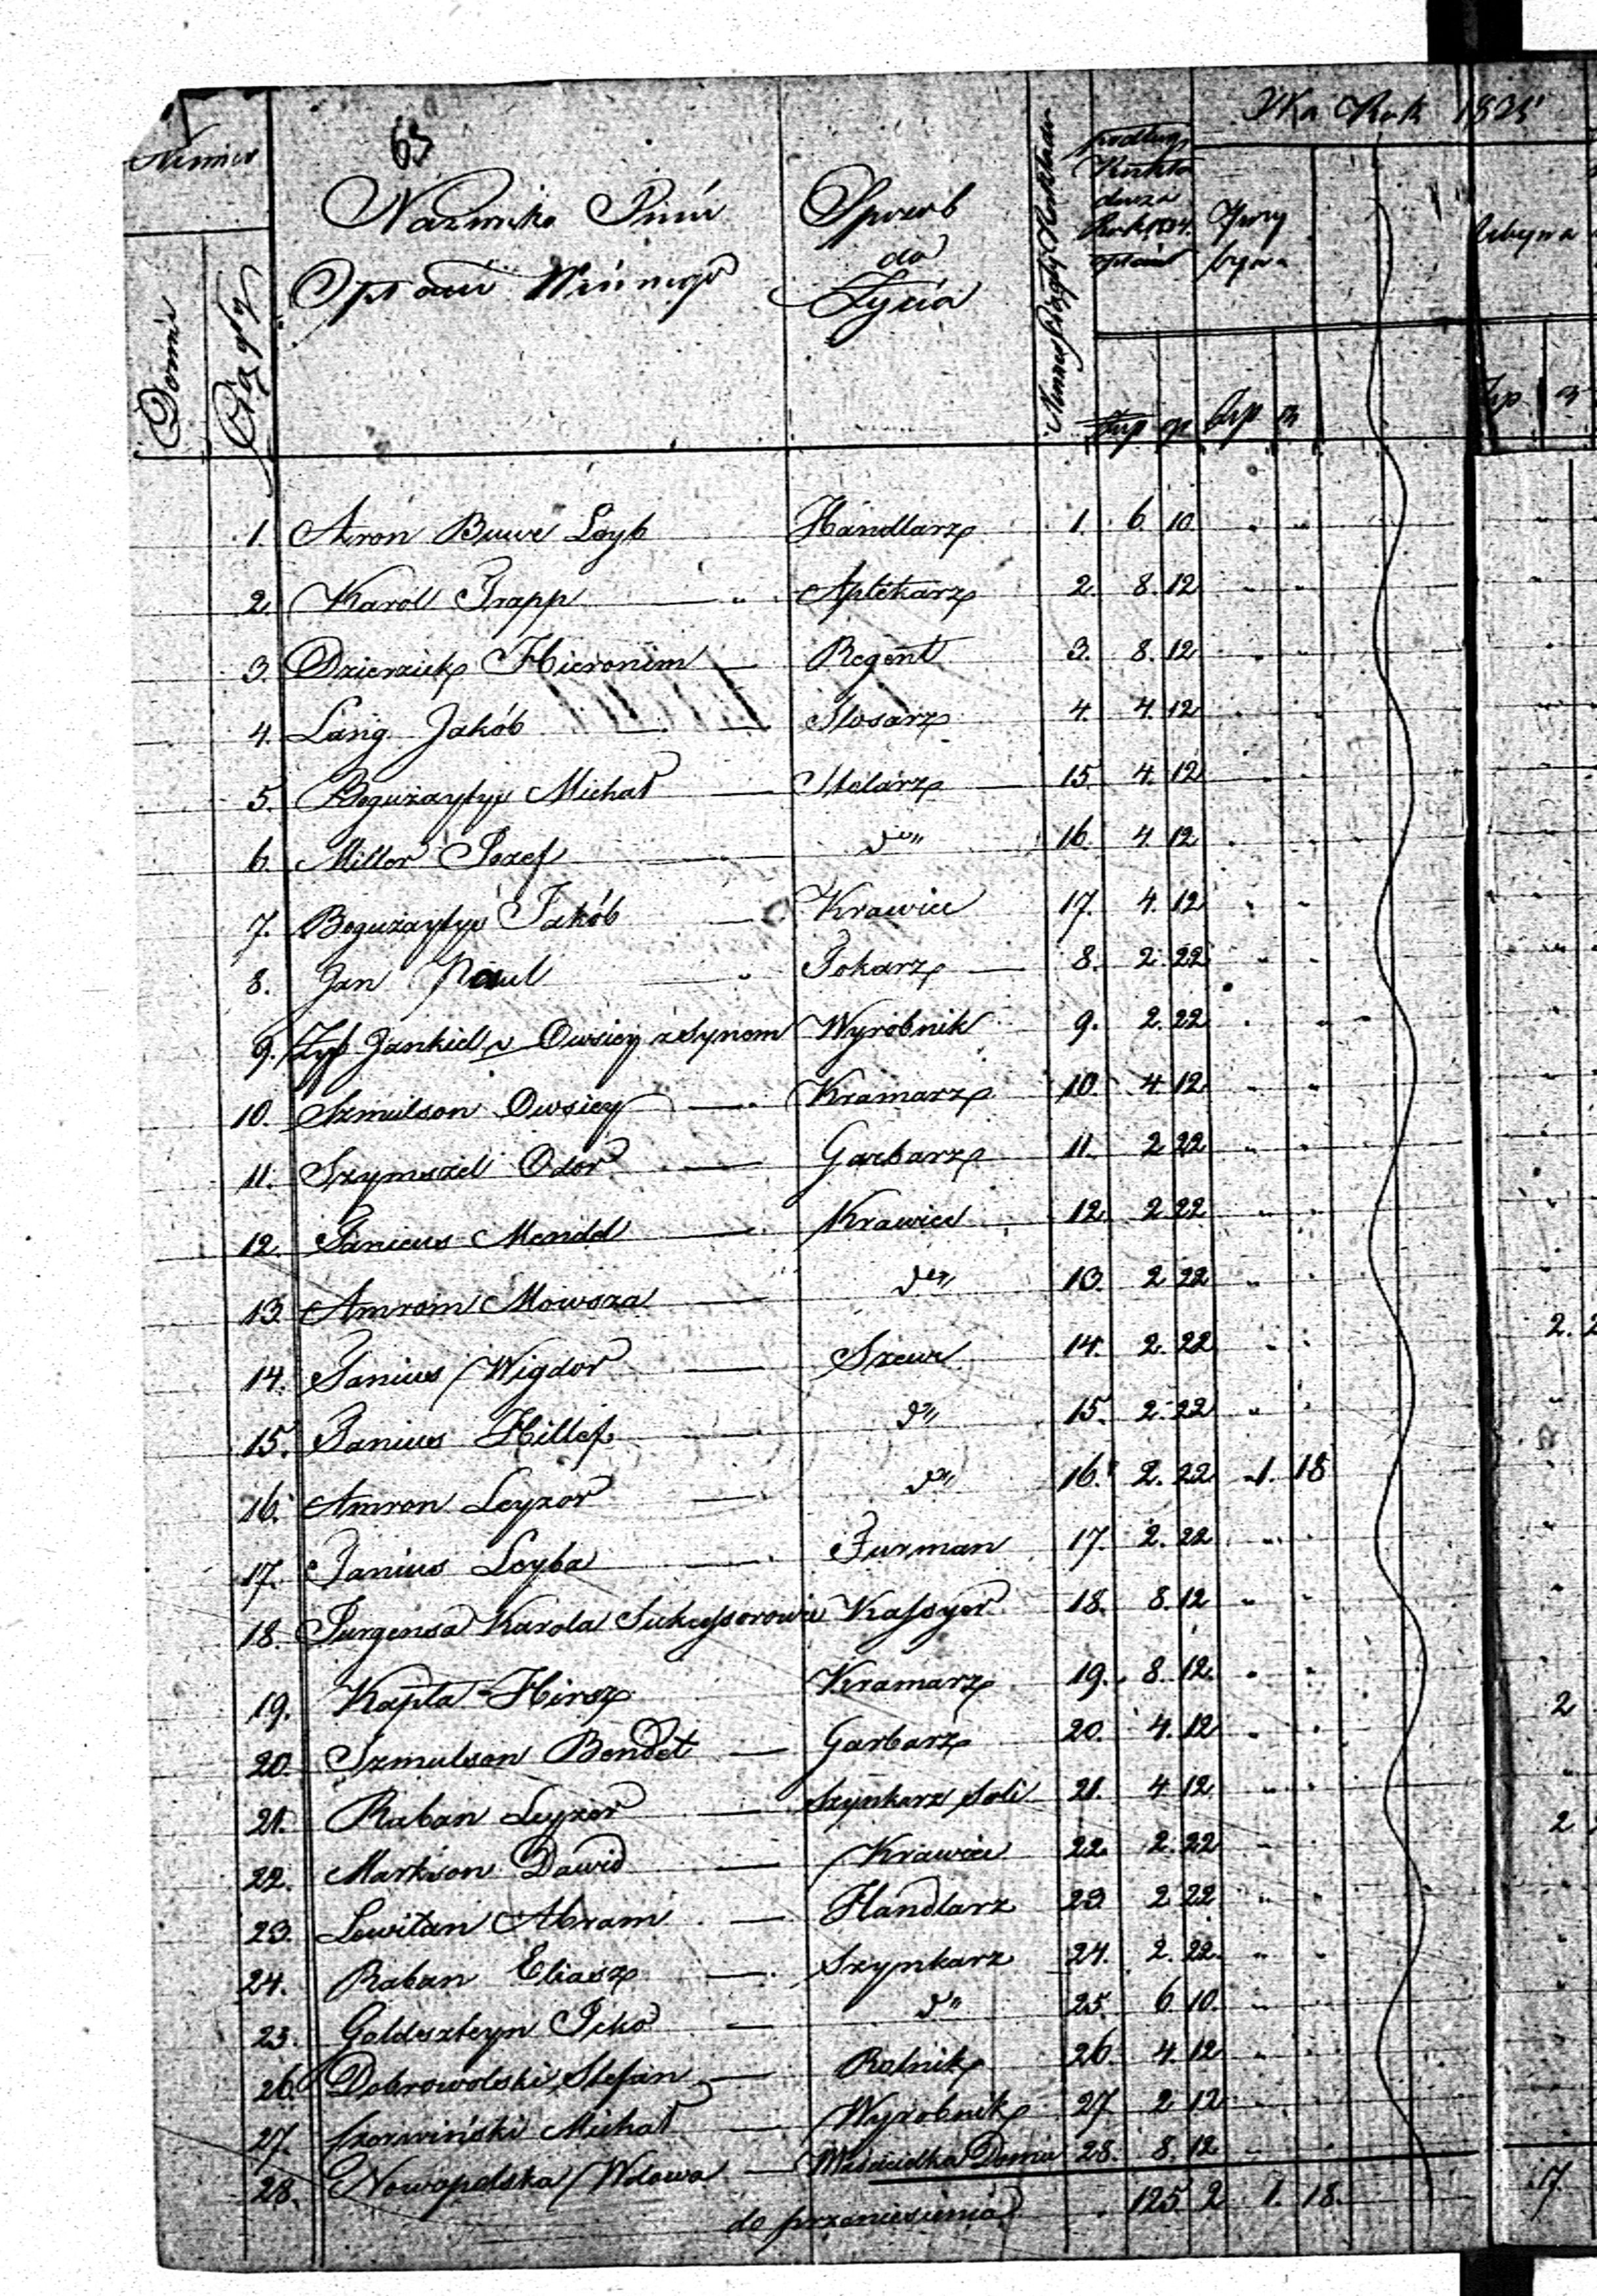 63
Numer
Domu
Nazwisko Imie
Opłacać Winnego
Sposób
do
Życia
podług
Rozkła
du za
Rok 1834
opłacał
Przy
bywa
Na Rok 1835
Ubywa
Złp gr Złp gr
Złp gr
1. Aron Buwe Leyb Handlarz 1. 6 10 " "
2. Karol Trapp — " Aptekarz 2. 8. 12 " "
3. Dzierzick Hieronim — Regent 3. 8. 12 " "
4. Lang Jakób — Slosarz 4. 4. 12 " "
5. Michał — Stolarz — 15. 4. 12 " "
6. Miller Jozef do" 16. 4. 12 " "
7. Jakób — Krawiec 17. 4. 12 " "
8. Jan Paul " Tokarz — 8. 2. 22 " "
9. Zyf Jankiel Owsiey z Synem Wyrobnik 9. 2. 22 " "
10. Szmulson Owsiey — Kramarz 10. 4 12 " "
11. Szymszel Odor — Garbarz 11. 2 22 " "
12. Janicus Mendel — Krawiec 12. 2 22 " "
13. Amrom Mowsza — do" 13. 2 22 " "
14. Janius Wigdor — Szewc 14. 2. 22 " " 2.
15. Janius Hillef — do" 15. 2. 22 " "
16. Amron Leyzor — do" 16. 2. 22 1. 18
17. Janius Leyba — Furman 17. 2. 22 " "
18. Jurgensa Karola Sukcessorowie Kassyer 18. 8. 12 " "
19. Kapła Hirsz Kramarz 19. 8. 12. " "
20. Szmulson Bendet — Garbarz 20. 4. 12 " " 2
21. Raban Leyzor — Szynkarz Soli 21. 4 12 " "
22. Markson Dawid — Krawiec 22. 2. 22 " " 2
23. Lewitan Abram — Handlarz 23. 2 22 " "
24. Raban Eliasz — Szynkarz 24. 2. 22. " "
25. Goldeszteyn Icko — do" 25. 6 10 " "
26. Dobrowolski Stefan — Rolnik 26. 4. 12 " "
27. Czerwiński Michał — Wyrobnik 27. 2 12 " "
28. Nowopolska Wdowa — Właścicielka Domu 28. 8. 12 " "
do przeniesienia 125 2 1. 18. 17.